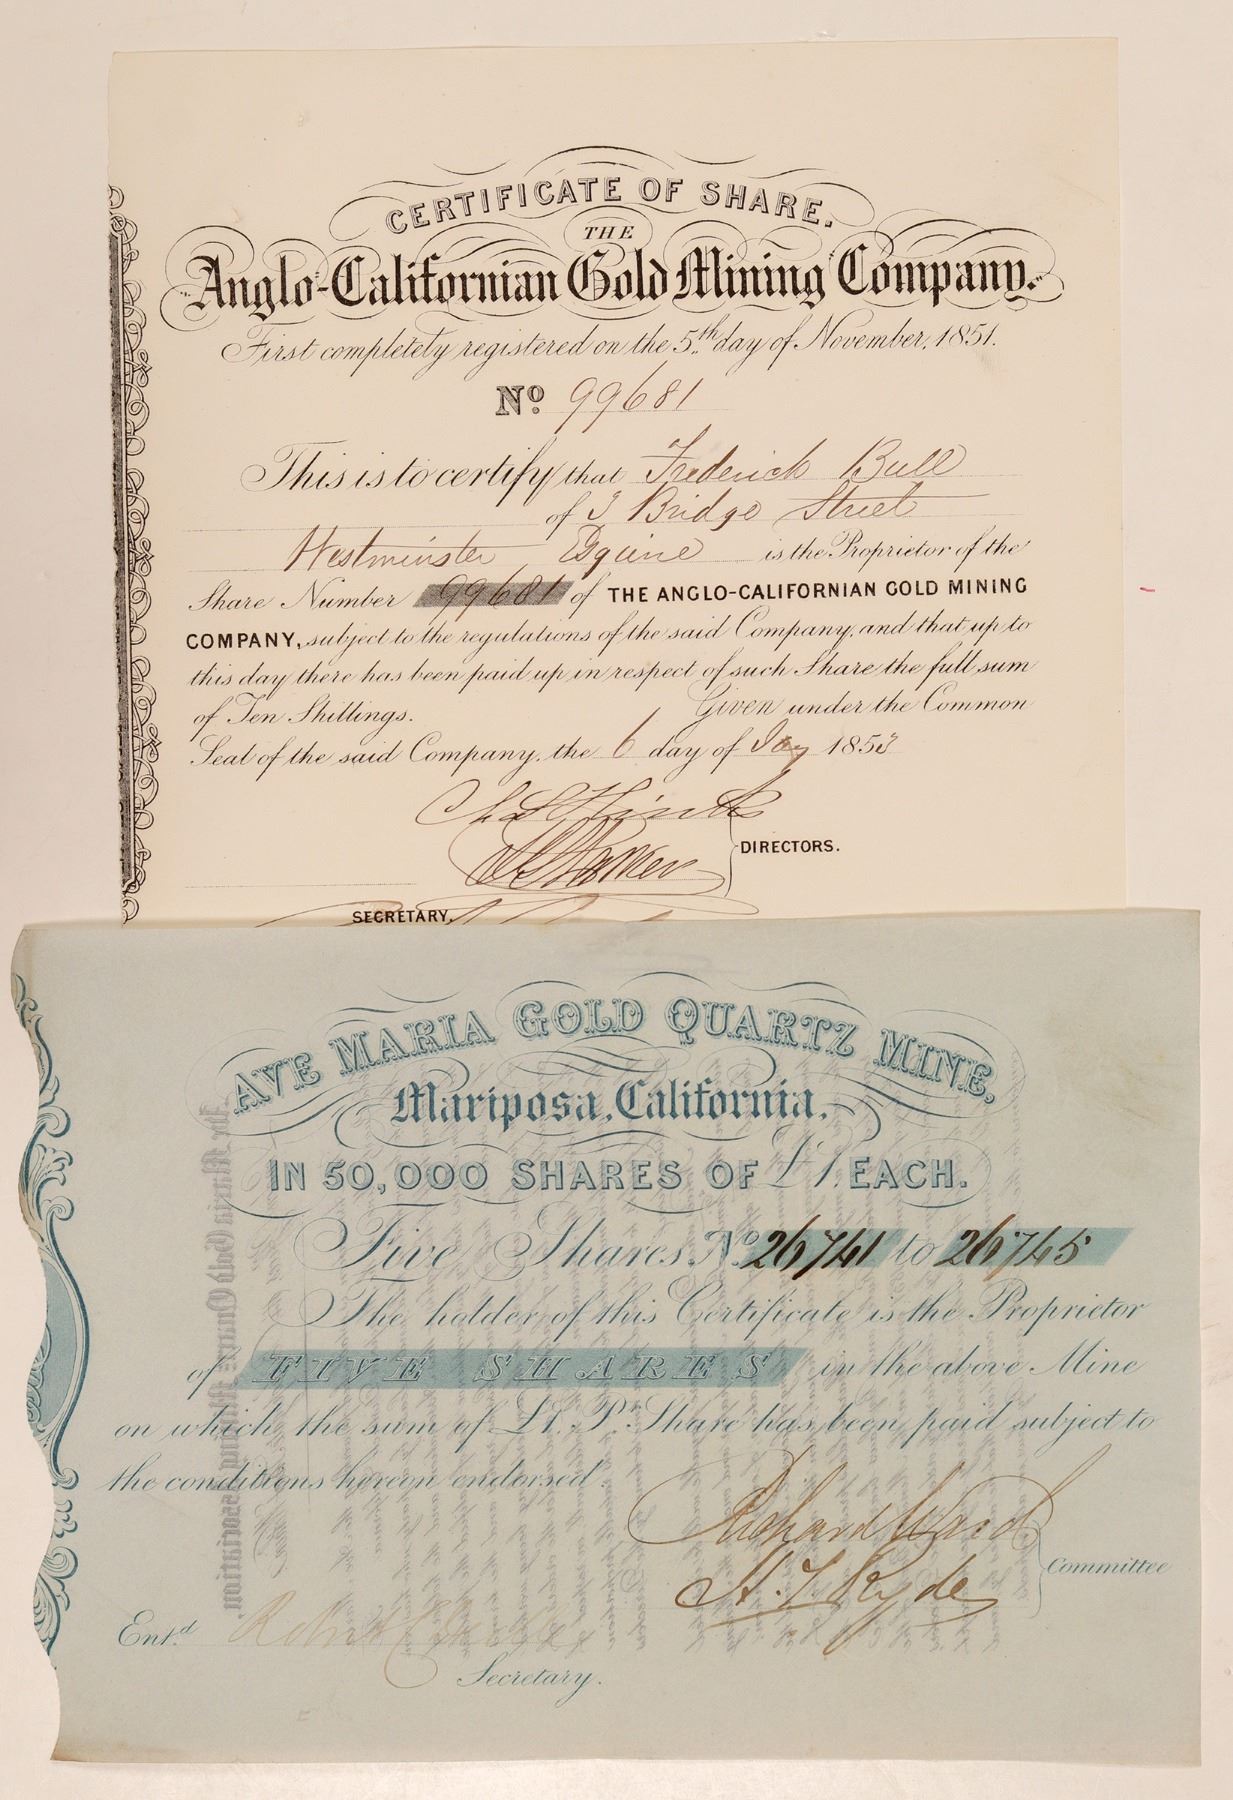 CERTIFICATE OF SHARE.
THE
Anglo-Californian Gold Mining Company.
First completely registered on the 5th day of November, 1851.
No. 99681
This is to certify that Frederick Bull
of 3 Bridge Street
Westminster Esquire is the Proprietor of the
Share Number 99681 of THE ANGLO-CALIFORNIAN GOLD MINING
COMPANY, subject to the regulations of the said Company, and that up to
this day there has been paid up in respect of such Share the full sum
of Ten Shillings. Given under the Common
Seal of the said Company, the 6 day of 1853
DIRECTORS.
SECRETARY.
AVE MARIA GOLD QUARTZ MINE,
Mariposa, California,
IN 50,000 SHARES OF £1 EACH.
Five Shares No 26741 to 26745
The holder of this Certificate is the Proprietor
of FIVE SHARES in the above Mine
on which the sum of £1. Pr. Share has been paid subject to
the conditions hereon endorsed.
Richard Ward
H. T. Ryde
Committee
Entd Robert
Secretary.